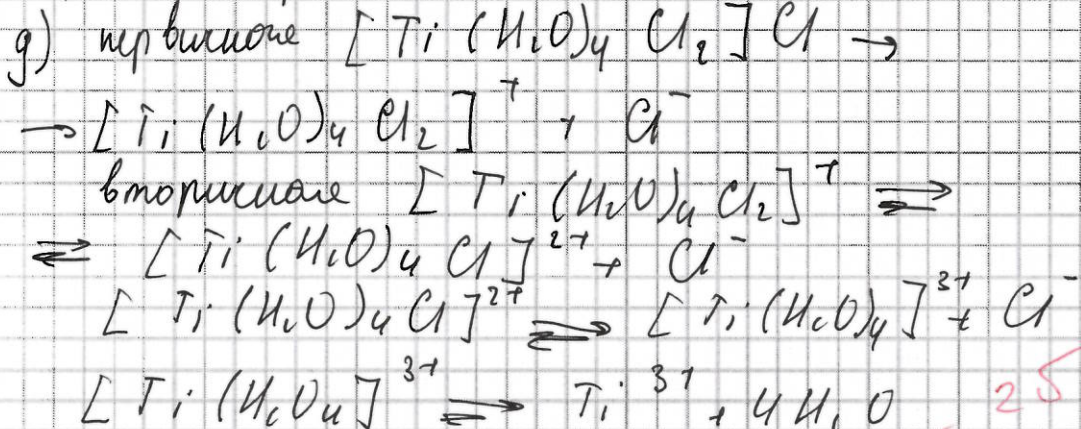 д) первичное [Ti(H₂O)₄Cl₂]Cl →
→ [Ti(H₂O)₄Cl₂]⁺ + Cl⁻
вторичное [Ti(H₂O)₄Cl₂]⁺ ⇌
⇌ [Ti(H₂O)₄Cl]²⁺ + Cl⁻
[Ti(H₂O)₄Cl]²⁺ ⇌ [Ti(H₂O)₄]³⁺ + Cl⁻
[Ti(H₂O₄]³⁺ ⇌ Ti³⁺ + 4H₂O 2б